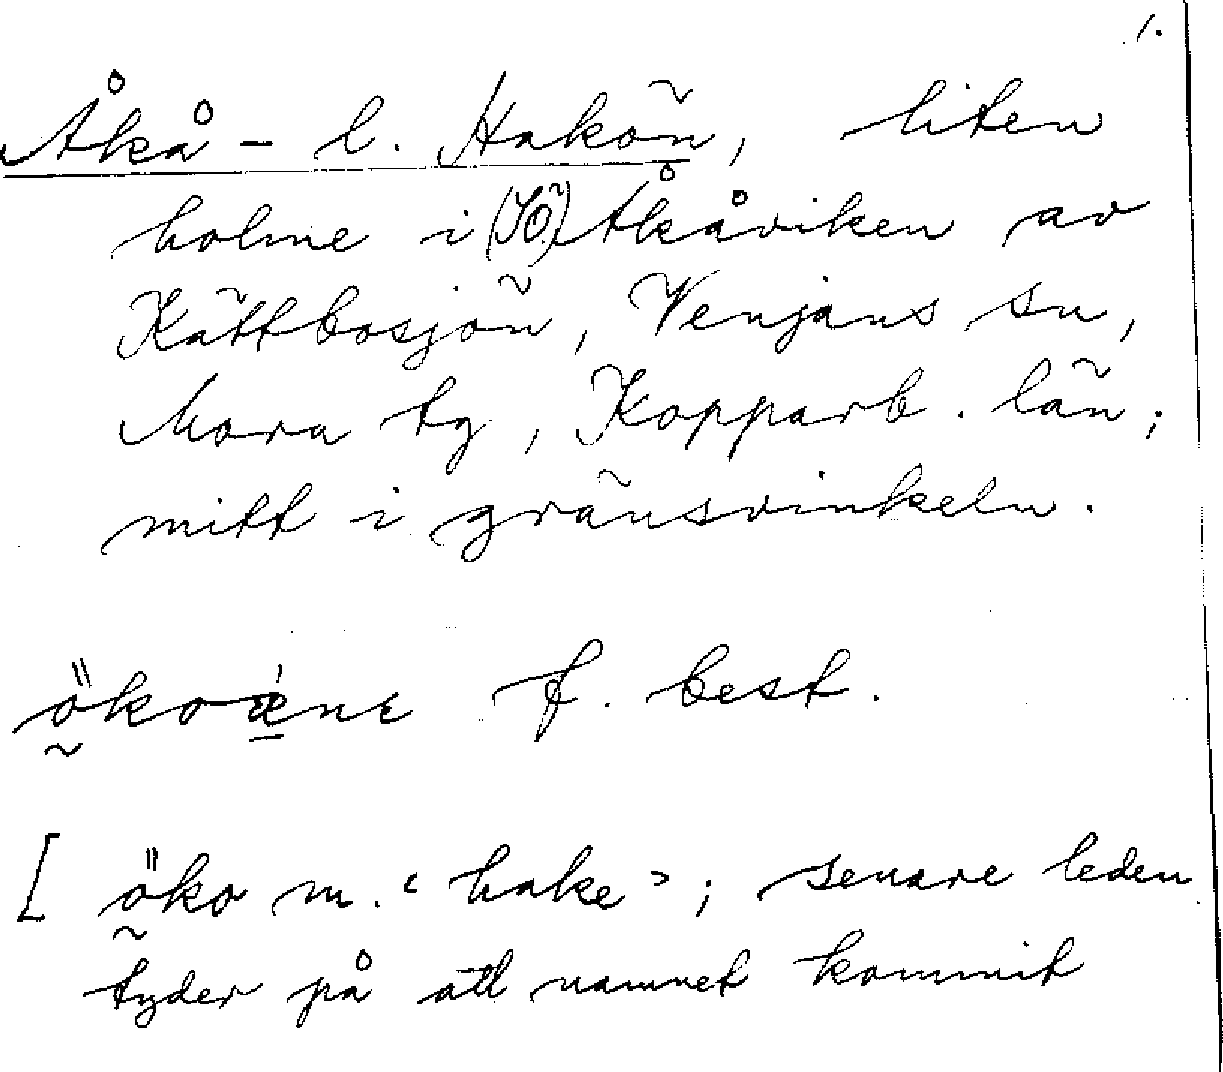 1.
Åkå- l. Hakön, liten
holme i (Yö) Åkåviken av
Kättbosjön, Venjans sn,
Mora tg, Kopparb. län;
mitt i gränsvinkeln.
f. best.
[ öko m. ‘hake’; senare leden
tyder på att namnet kommit